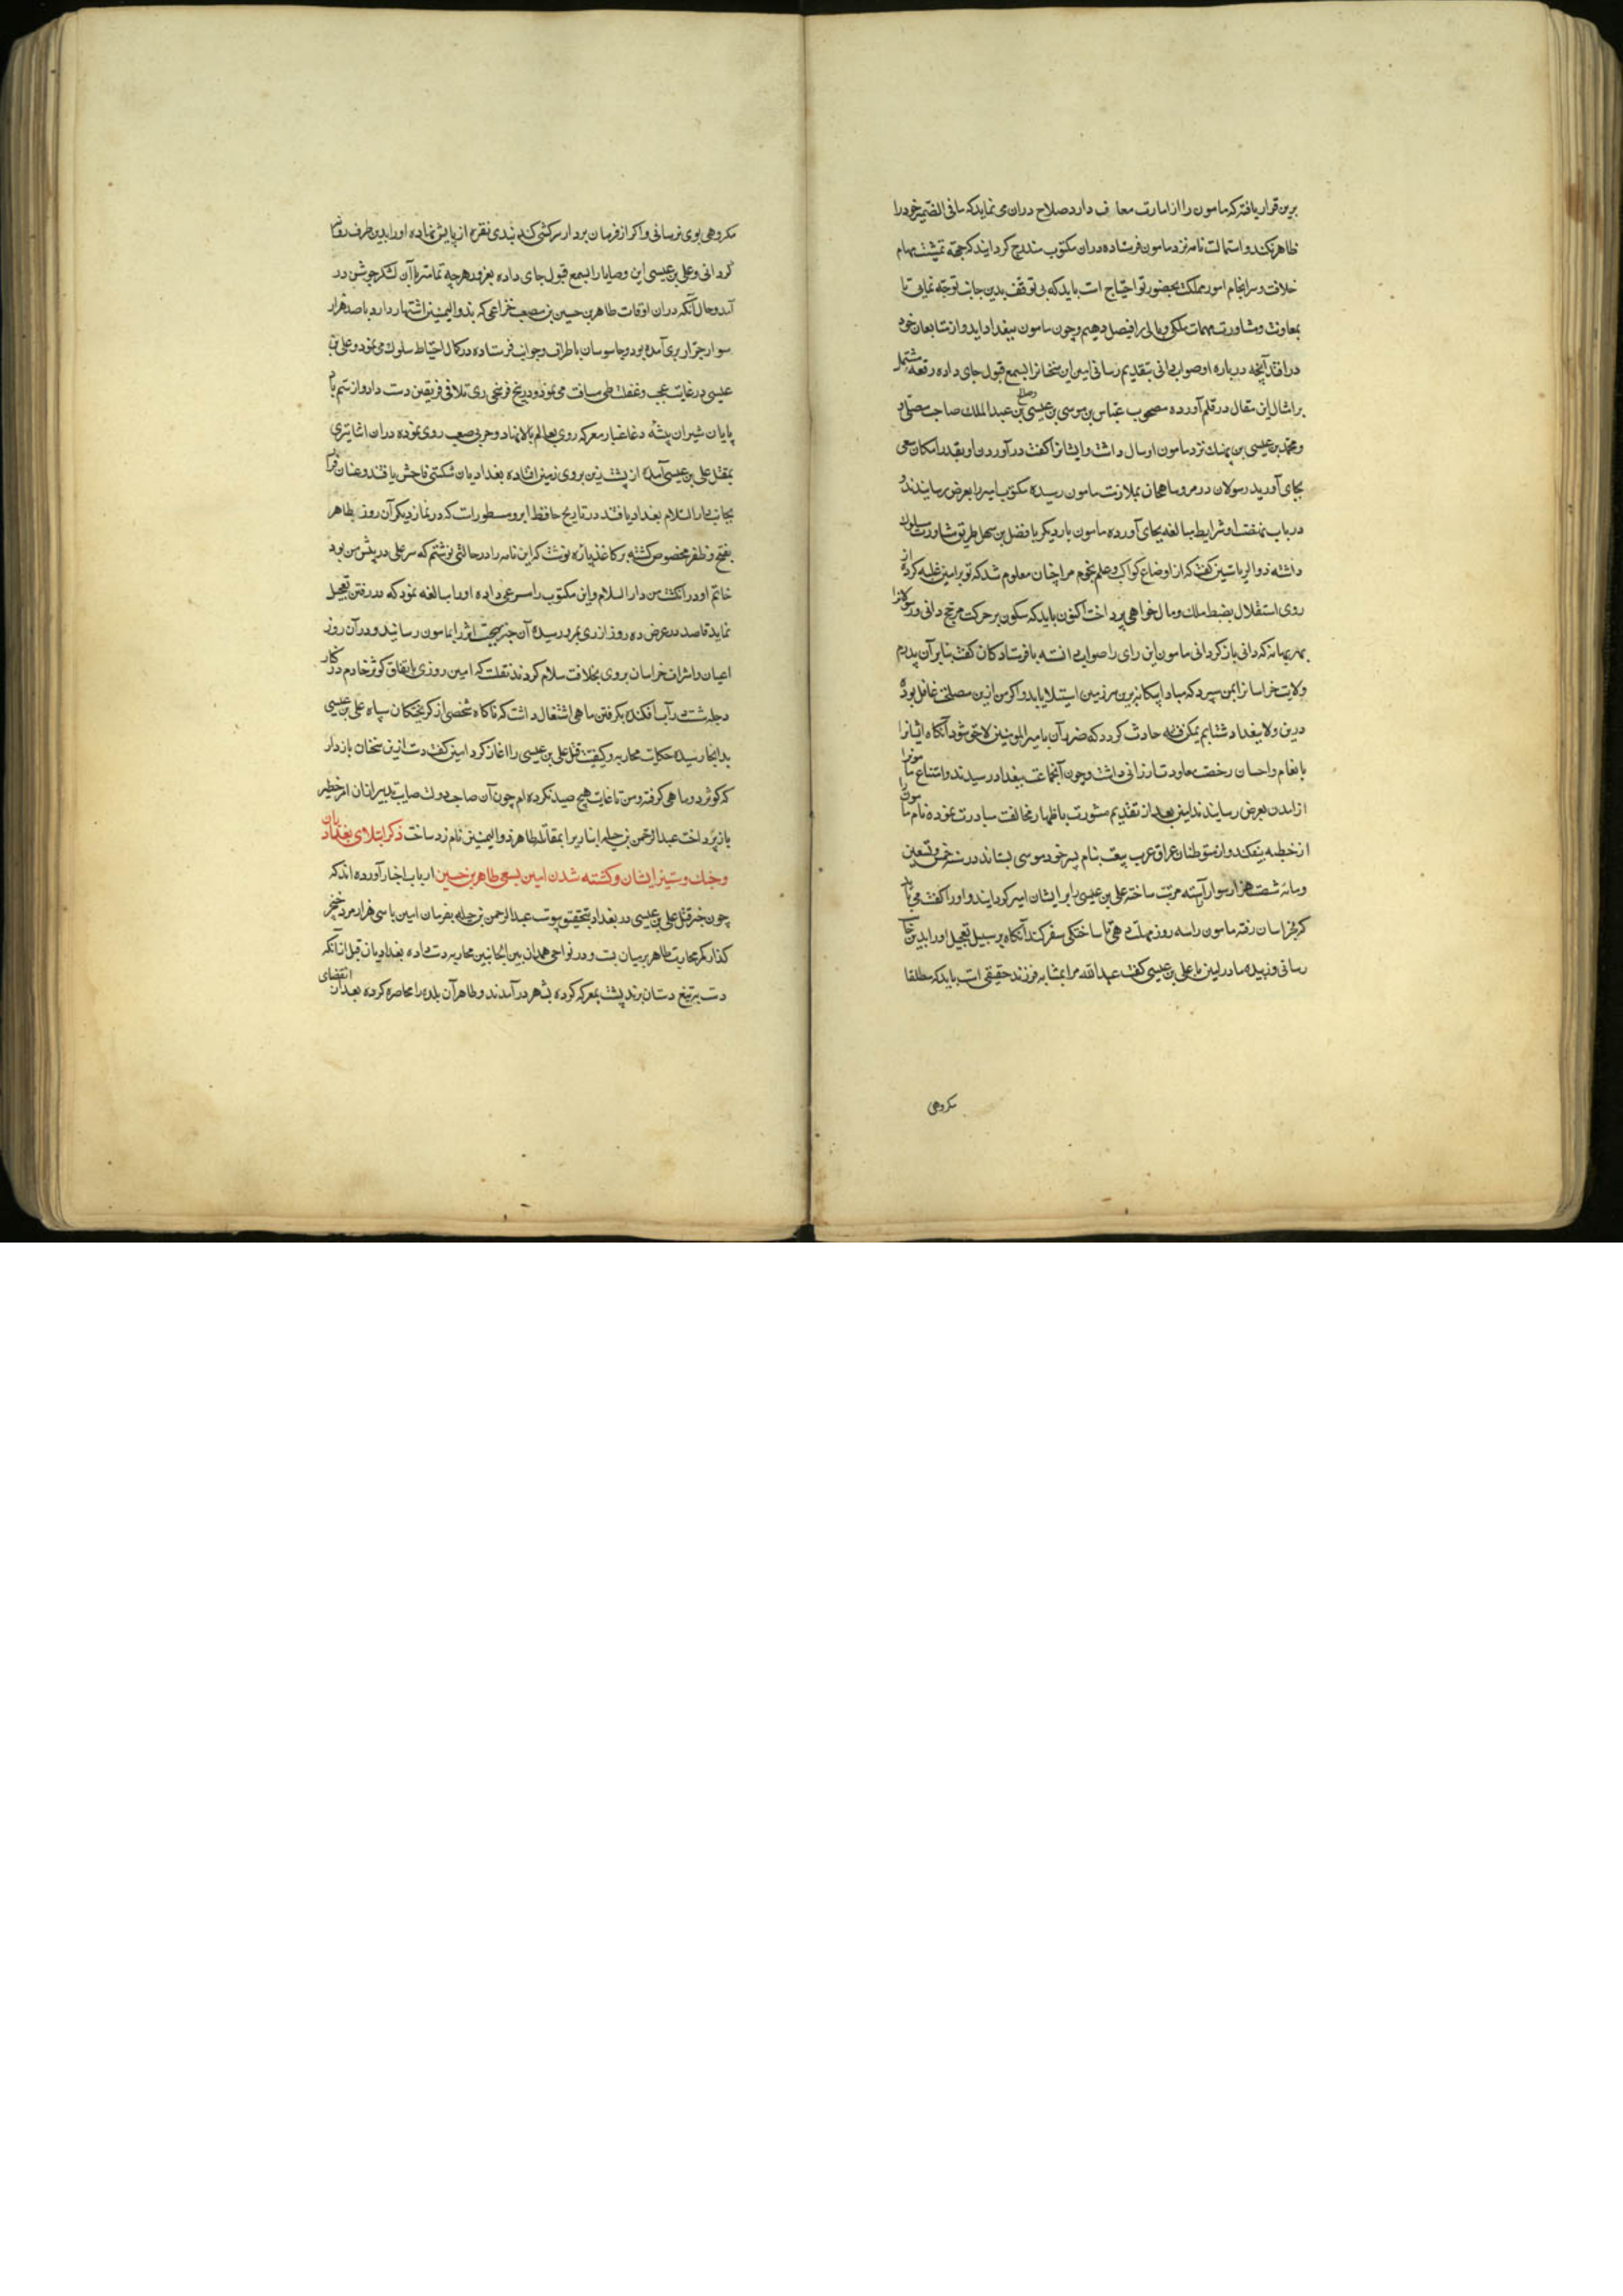 برین قرار یافته که مامون را از امارت معاف دارد صلاح دران می نماید که ما فی الضمیر خود را
ظاهر نکند و استمالت نامه نزد مامون فرستاده دران مکتوب مندرج گرداند که جهة تمشیت مهام
خلافت و سرانجام امور مملکت بحضور تو احتیاج است باید که بی توقف بدین جانب توجه نمایی تا
بمعاونت و مشاورت مهمات ملکی و مالی را فیصل دهیم و چون مامون ببغداد آید و از متابعان خود
در افتد آنچه درباره او صواب دانی بتقدیم رسانی امین این سخنانرا بسمع قبول جای داده رقعه مشتمل
بر امثال این مقال در قلم آورده مصحوب عباس بن موسی بن عیسی و صالح بن عبدالملک صاحب مصلی
و محمد بن عیسی بن نهیک نزد مامون ارسال داشت و ایشانرا گفت در آوردن او بقدر امکان سعی
بجای آورید رسولان در مرو شاهجان بملازمت مامون رسیده مکتوب امین را بعرض رسانیدند و
در باب نهضت او شرایط مبالغه بجای آورده مامون بار دیگر با فضل بن سهل طریق مشاورت مسلوک
داشته ذوالریاستین گفت که از اوضاع کواکب و علم نجوم مرا چنان معلوم شد که تو بر امین غلبه کرده از
روی استقلال بضبط ملک و مال خواهی پرداخت اکنون باید که سکون بر حرکت مرجح دانی و رسولانرا
بهر بهانه که دانی باز گردانی مامون این رای را صواب دانسته با فرستادگان گفت بنابر آن پدرم
ولایت خراسانرا بمن سپرد که مبادا بیگانه برین سرزمین استیلا یابد و اگر من ازین مصلحت غافل بوده
درین ولا ببغداد شتابم یمکن فتنه حادث گردد که ضرر آن بامیرالمومنین لاحق شود آنگاه ایشانرا
بانعام و احسان رخصت معاودت ارزانی داشت و چون آن جماعت ببغداد رسیدند و امتناع مامونرا
از آمدن بعرض رسانیدند امین بعد از تقدیم مشورت باظهار مخالفت مبادرت نموده نام مامون را
از خطبه بیفکند و از متوطنان عراق عرب بیعت بنام پسر خود موسی بستاند و در سنه خمس و تسعین
و مائه شصت هزار سوار آراسته مرتب ساخته علی بن عیسی را بر ایشان امیر گردانید و او را گفت می باید
که بخراسان رفته مامون را سه روز مهلت دهی تا ساختگی سفر کند آنگاه بر سبیل تعجیل او را بدین جانب
رسانی و زبیده مادر امین با علی بن عیسی گفت عبدالله مرا بمثابه فرزند حقیقی است باید که مطلقا
مکروهی
مکروهی بوی نرسانی و اگر از فرمان بردار سرکشی کند بندی نقره از پایش نهاده او را بدین طرف روان
گردانی و علی بن عیسی این وصایا را بسمع قبول جای داده بغرور هر چه تمامتر با آن لشکر جوشن در
آمد و حال آنکه دران اوقات طاهر بن حسین بن مصعب خزاعی که بذوالیمینین اشتهار دارد با صد هزار
سوار جرار بری آمده بود و جاسوسان باطراف و جوانب فرستاده در کمال احتیاط سلوک می نمود و علی بن
عیسی در غایت عجب و غفلت طی مسافت می نمود و در پنج فرسخی ری تلاقی فریقین دست داد و از ستم باد
پایان شیران بیشه دغا غبار معرکه روی بعالم بالا نهاد و حربی صعب روی نموده دران اثنا تیری
بمقتل علی بن عیسی آمده از پشت زین بروی زمین افتاده بغدادیان شکستی فاحش یافتند و عنان فرار
بجانب دارالسلام بغداد یافتند در تاریخ حافظ ابرو مسطورات که در نماز دیگر آن روز طاهر
بفتح و ظفر مخصوص گشته بر کاغذ پاره نوشت که این نامه را در حالتی نوشتم که سر علی در پیش من بود
خاتم او در انگشت من والسلام و این مکتوب را بمسرعی داده او را مبالغه نمود که در رفتن تعجیل
نماید قاصد در عرض ده روز از ری بمرو رسیده آن خبر بهجت اثر را بمامون رسانید و در آن روز
اعیان و اشراف خراسان بروی بخلافت سلام کردند نقلست که امین روزی باتفاق کوثر خادم در کنار
دجله شست در آب افکنده بگرفتن ماهی اشتغال داشت که ناگاه شخصی از گریختگان سپاه علی بن عیسی
بدانجا رسیده حکایت محاربه و کیفیت قتل علی بن عیسی را آغاز کرد امین گفت دست ازین سخنان باز دار
که کوثر دو ماهی گرفته و من تا غایت هیچ صید نکرده ام چون آن صاحب دولت صایب تدبیر از آن امر خطیر
باز پرداخت عبدالرحمن بن جبله ابناری را بمقابله طاهر ذوالیمینین نام زد ساخت ذکر ابتلای بغدادیان
و جنک و ستیز ایشان و کشته شدن امین بسعی طاهر بن حسین ارباب اخبار آورده اند که
چون خبر قتل علی بن عیسی در بغداد بتحقیق پیوست عبدالرحمن بن جبله بفرمان امین با سی هزار مرد خنجر
گذار کمر محاربت طاهر بر میان بست و در نواحی همدان بین الجانبین محاربه دست داده بغدادیان قبل از آنکه
دست به تیغ دستان برند پشت بمعرکه کرده بشهر در آمدند و طاهر آن بلده را محاصره کرده بعد از انقضای